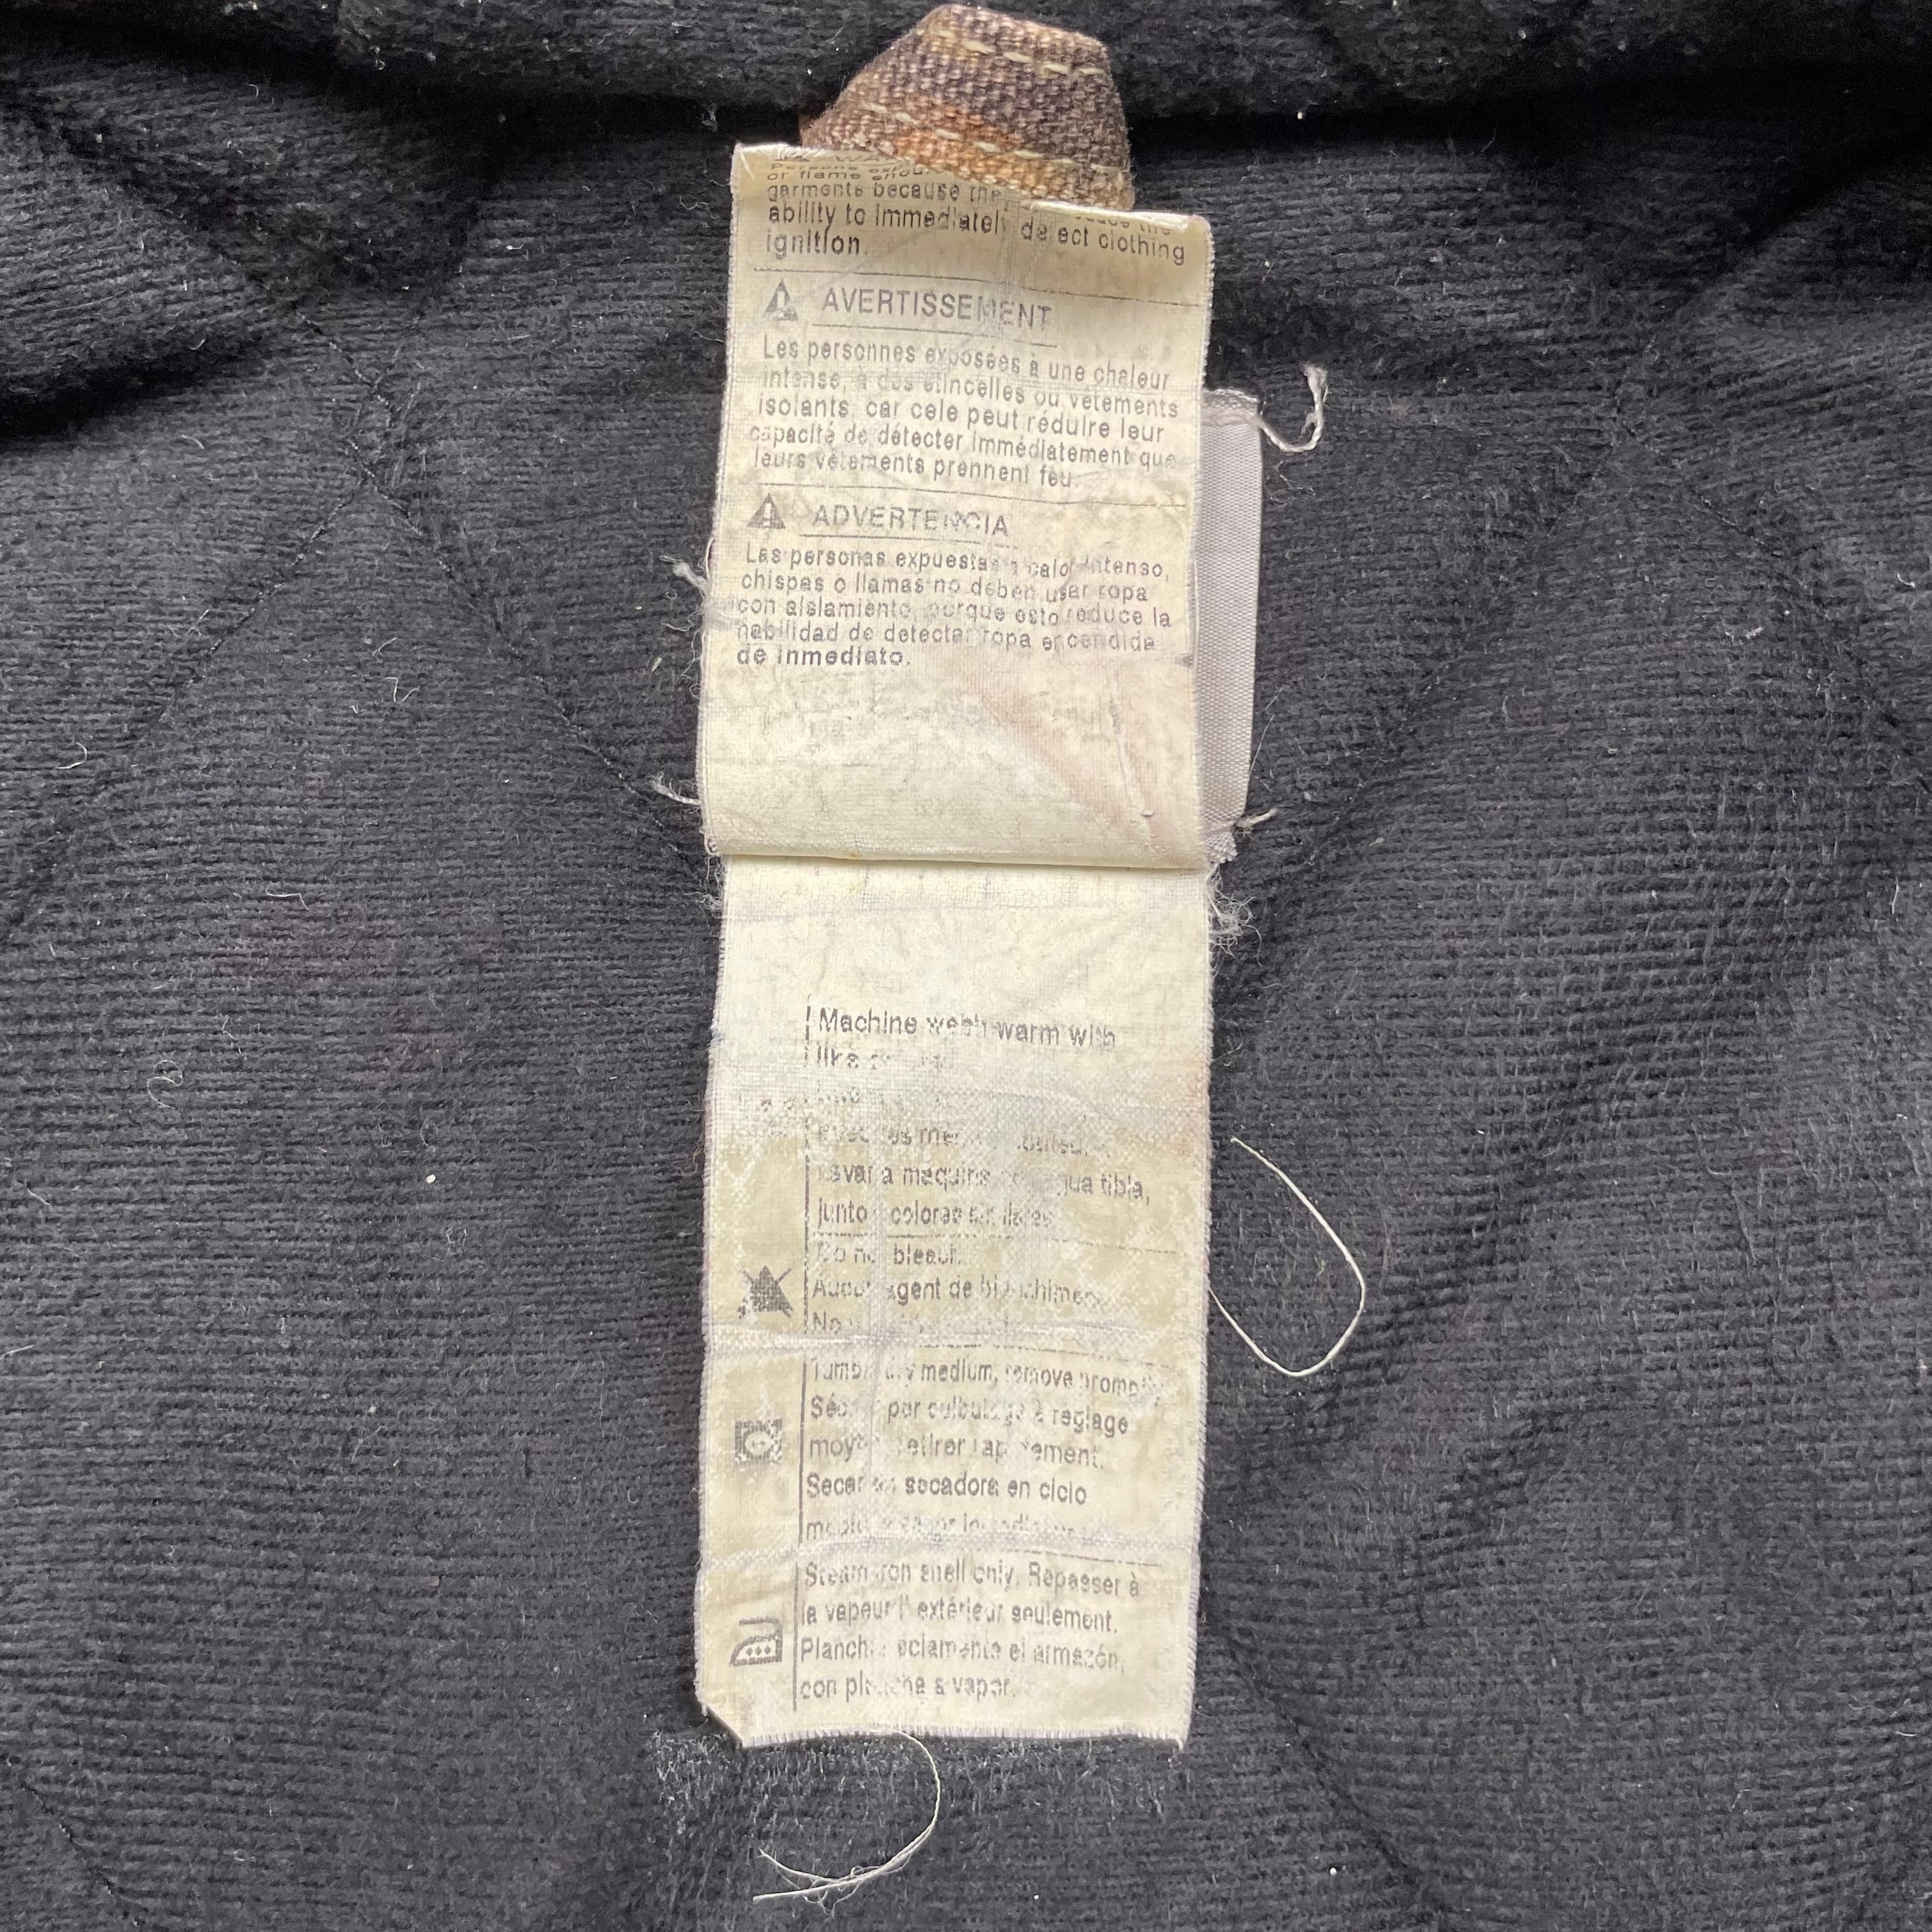 or flame
garments because the
ability to immediately detect clothing
ignition.
AVERTISSEMENT
Les personnes exposées à une chaleur
intense, à des étincelles ou vêtements
isolants, car cele peut réduire leur
capacité de détecter immédiatement que
leurs vêtements prennent feu.
ADVERTENCIA
Las personas expuestas a calor intenso,
chispas o llamas no deben usar ropa
con aislamiento, porque esto reduce la
habilidad de detectar ropa encendida
de inmediato.
Machine wash warm with
like
Lavar a maquina agua tibia,
junto colores similares
Do not bleach.
Aucun agent de blanchiment
No
Tumble dry medium, remove promptly
par culbutage à reglage
moyen, retirer rapidement.
Secar en secadora en ciclo
Steam iron shell only. Repasser à
la vapeur l' extérieur seulement.
Planchar solamente el armazón,
con plancha a vapor.